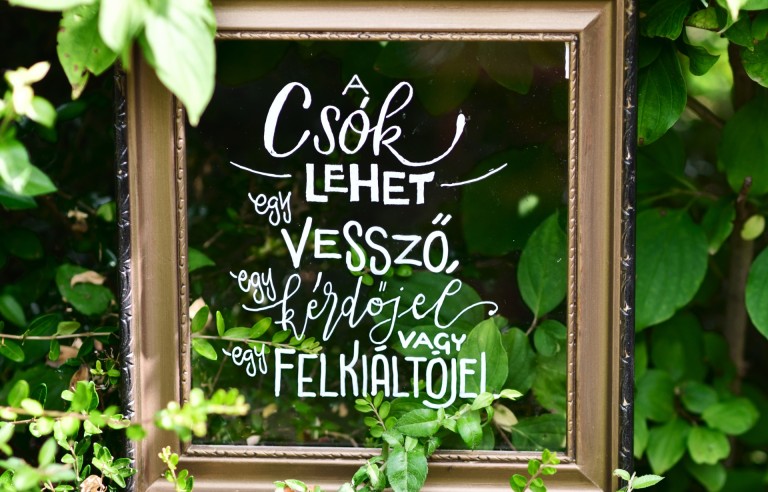 A
Csók
LEHET
egy
VESSZŐ,
egy kérdőjel
VAGY
egy FELKIÁLTÓJEL